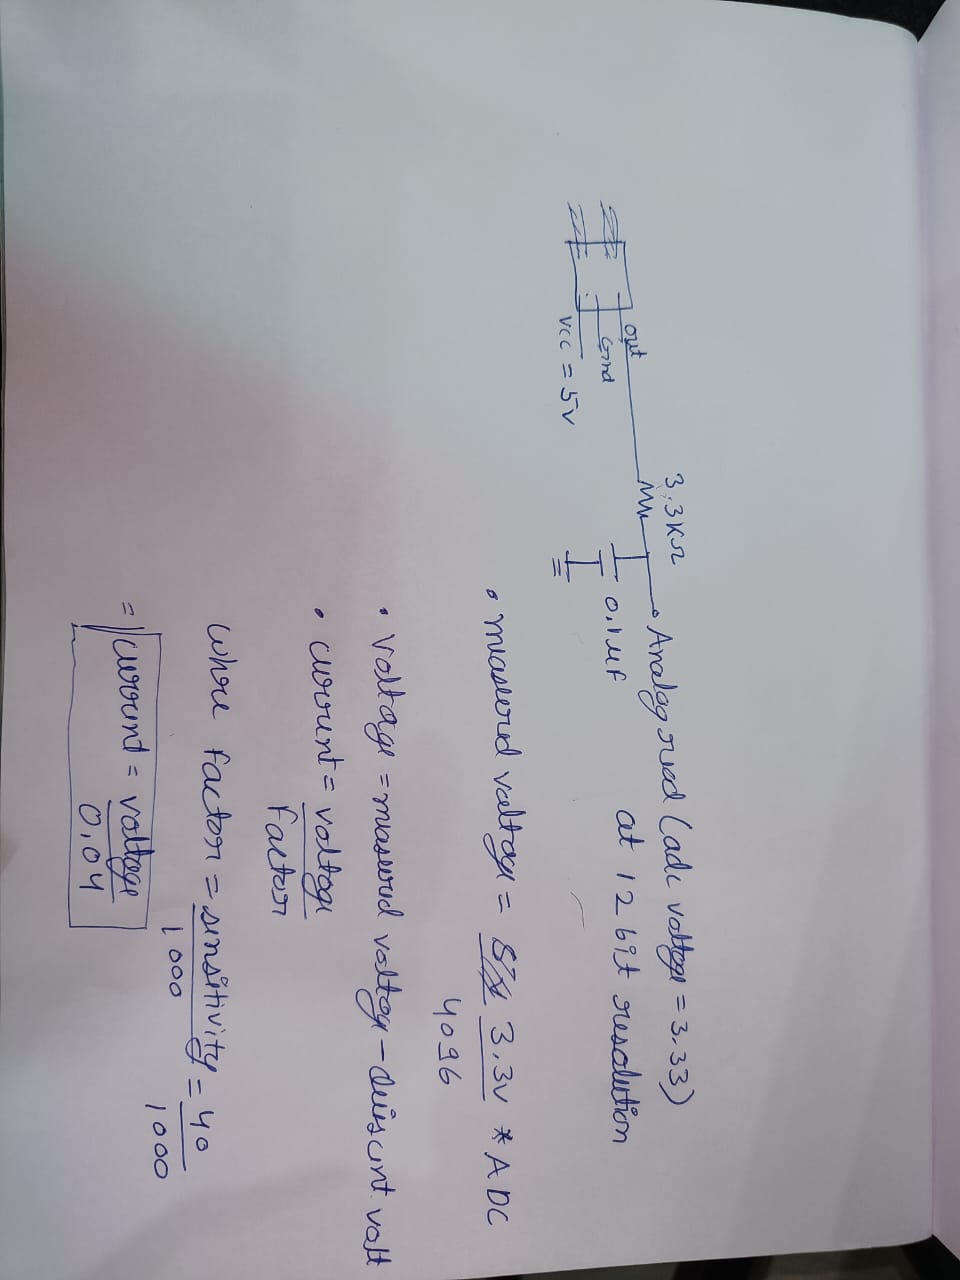 3.3KΩ
out
Gnd
Vcc = 5v
0.1μF
Analog read (adc voltage = 3.33)
at 12 bit resolution
• measured voltage = 3.3v * ADC
4096
• voltage = measured voltage - quiscent volt
• current = voltage
Factor
where factor = sensitivity = 40
1000 1000
= current = voltage
0.04